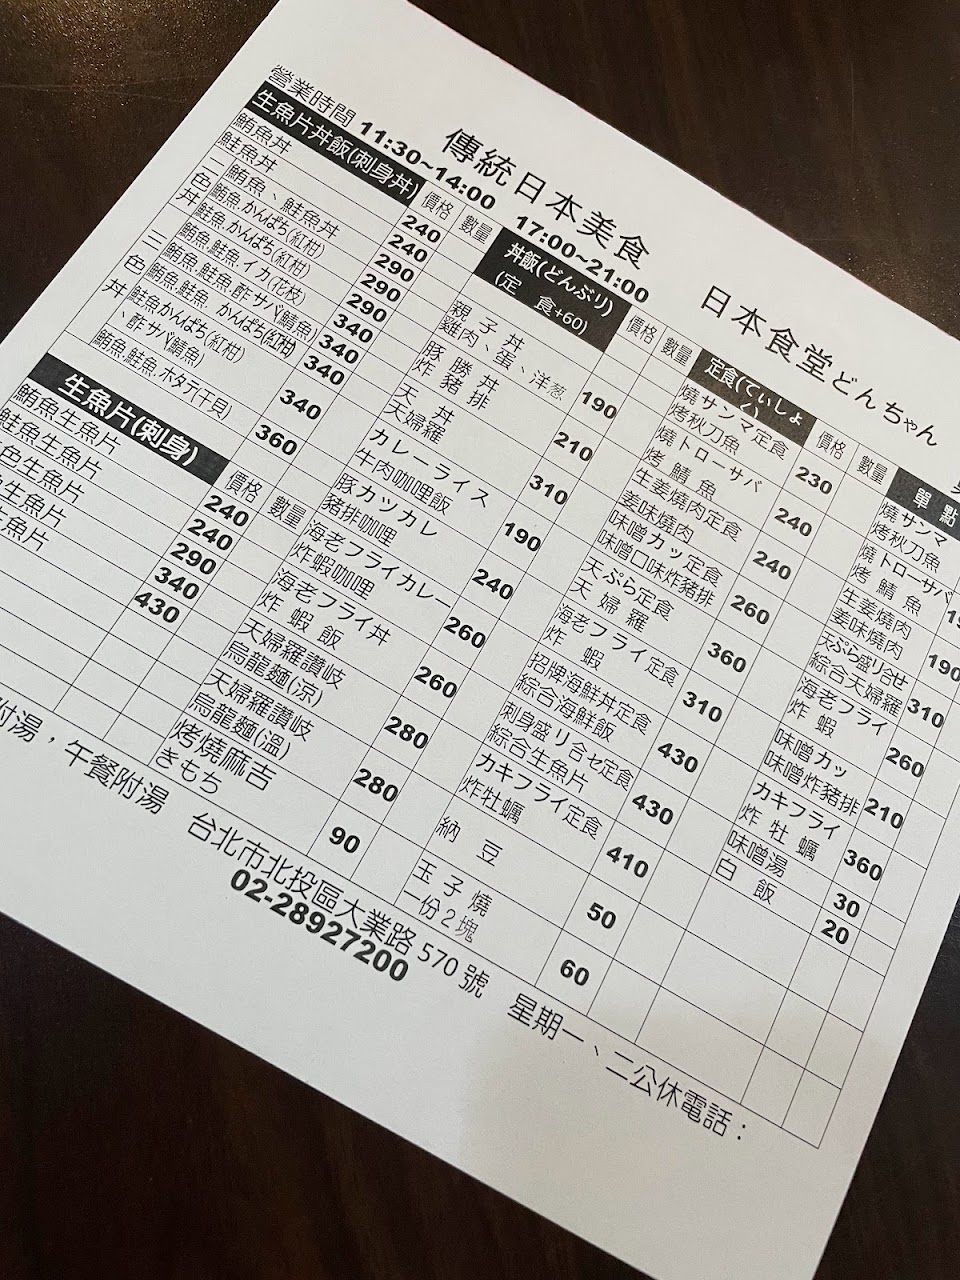 傳統日本美食
日本食堂どんちゃん
營業時間 11:30~14:00 17:00~21:00
生魚片丼飯(刺身丼) 價格 數量
鮪魚丼 240
鮭魚丼 240
二色丼
鮪魚、鮭魚丼 290
鮪魚.かんぱち(紅柑) 290
鮭魚.かんぱち(紅柑) 290
三色丼
鮪魚.鮭魚.イカ(花枝) 340
鮪魚.鮭魚.酢サバ(鯖魚) 340
鮪魚.鮭魚 かんぱち(紅柑) 340
鮭魚かんぱち(紅柑)
、酢サバ(鯖魚) 340
鮪魚.鮭魚.ホタテ(干貝) 360
生魚片(刺身) 價格 數量
鮪魚生魚片 240
鮭魚生魚片 240
色生魚片 290
生魚片 340
生魚片 430
丼飯(どんぶり)
(定 食+60) 價格 數量
親子丼
雞肉、蛋、洋葱 190
豚勝丼
炸豬排 210
天丼
天婦羅 310
カレーライス
牛肉咖哩飯 190
豚カツカレ
豬排咖哩 240
海老フライカレー
炸蝦咖哩 260
海老フライ丼
炸蝦飯 260
天婦羅讚岐
烏龍麵(涼) 280
天婦羅讚岐
烏龍麵(溫) 280
烤燒麻吉
きもち 90
定食(ていしょ
く) 價格 數量
燒サンマ定食
烤秋刀魚 230
燒トローサバ
烤鯖魚 240
生姜燒肉定食
姜味燒肉 240
味噌カッ定食
味噌口味炸豬排 260
天ぷら定食
天婦羅 360
海老フライ定食
炸蝦 310
招牌海鮮丼定食
綜合海鮮飯 430
刺身盛り合せ定食
綜合生魚片 430
カキフライ定食
炸牡蠣 410
納豆 50
玉子燒
一份2塊 60
單點
燒サンマ
烤秋刀魚
燒トローサバ
烤鯖魚
生姜燒肉
姜味燒肉 190
天ぷら盛り合せ
綜合天婦羅 310
海老フライ
炸蝦 260
味噌カッ
味噌炸豬排 210
カキフライ
炸牡蠣 360
味噌湯 30
白飯 20
附湯，午餐附湯 台北市北投區大業路 570 號 星期一、二公休電話：
02-28927200